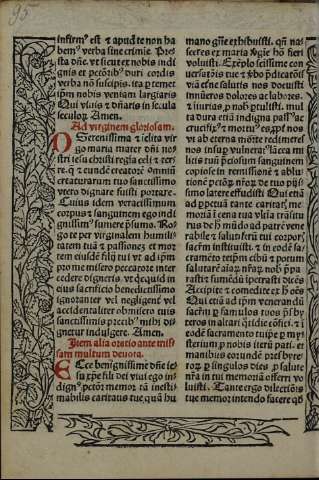 95
infirm⁹ est & apud te non ha
bem⁹ verba sine crimie. Pre
sta dñe. vt sicut ex nobis indi
gnis et pctõrib⁹ duri cordis
verba nõ suscipis. ita p temet
ipm nobis veniam largiaris
Qui viuis & dñaris in secula
seculoꝝ. Amen.
Ad virginem gloriosam.
O Serenissima & iclita vir
go maria mater dñi nos
tri iesu christi regia celi & ter
re. q̃ eundẽ creatorẽ omnium
creaturarum tuo sanctissimo
vtero dignare fuisti portare.
Cuius idem veracissimum
corpus & sanguinem ego indi
gnissim⁹ sumere psumo. Ro
go te per virginalem humili
tatem tuã & passiones et mor
tem eiusdẽ filij tui vt ad ipm
pro me misero peccatore inter
cedere digneris. vt quicqd in
eius sacrificio benedictissimo
ignoranter vel negligent vel
accidentaliter obmisero tuis
sanctissimis precib⁹ mihi di
gnetur indulgere. Amen.
Item alia oratio ante mis
sam multum deuota.
Ecce benignissime dñe ie
su xpe fili dei viui ego in
dign⁹ pctor memor tã inesti
mabilis caritatis tue. quã hu
mano gñe exhibuisti. qñ na
sces ex maria Virgie hõ fieri
voluisti. Exẽplo scissime con
uersatõis tue & xbo pdicatõis
viã etne salutis nos docuisti
innueros dolores ac labores.
& iiurias p nob ptulisti. mul
ta dura etiã indigna pass⁹ ac
crucifix⁹ & mortu⁹ es. xpe nos
vt ab eterna morte redimeres
nos in sup vulnera lacea me
libus tuũ pciosum sanguinem
copiose in remissionẽ & ablu
tionẽ pctõꝝ nr̃oꝝ de tuo piis
simo latere effudisti Qui eciã
ad ppetuã tante caritatis me
moriã i cena tua vltia trãsitu
rus de h̃ mũdo ad patrẽ vene
rabile & salutiferũ tui corporis
sacñm instituisti. & in eodẽ sa
cramẽto teipm cibũ & potum
salutarẽ aiarꝝ nr̃arꝝ nob ppa
rasti & sumẽdũ ipertisti dicẽs
Accipite & comedite ex h̃ oẽs
Qui etiã ad ipm venerandũ
sacñm p famulos tuos psby
teros in altari qtidie cõfici. & i
eodẽ sacramento tuipe p my
sterium p nobis iterũ pati. et
manibus eorundẽ presbyte
roꝝ p singulos dies p salute
nr̃a in tui memoriã offerri vo
luisti. Tante ergo dilectiõis
tue memor intendo facere qd